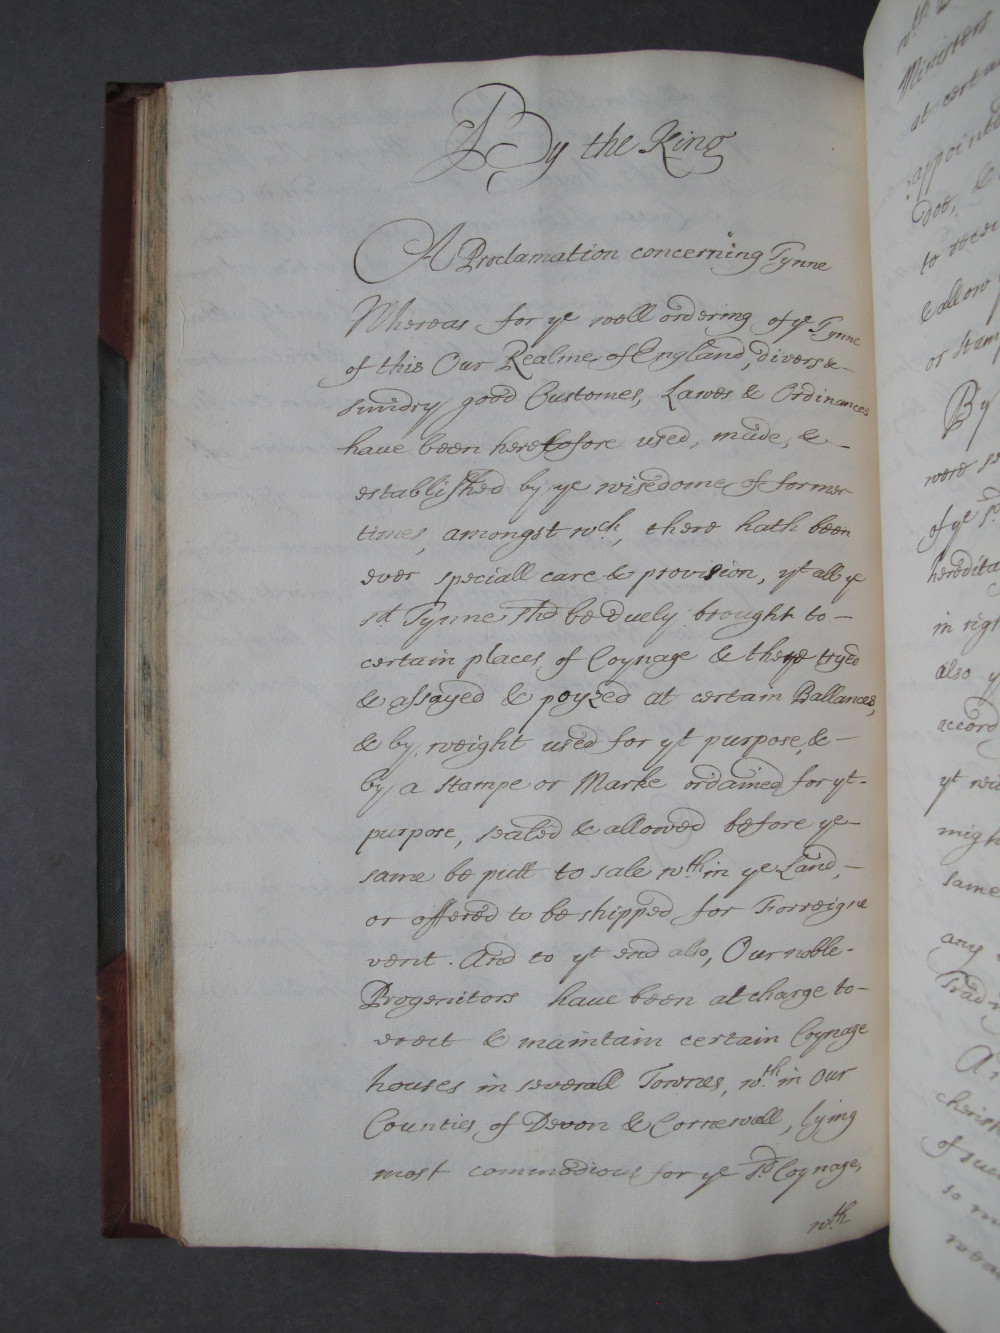 By the King
A Proclamation concerning Tynne
Whereas for ye well ordering of ye Tynne
of this Our Realme of England, divers &
sundry good Customes, Lawes & Ordinances
have been heretofore used, made, &
established by ye wisedome of former
times, amongst wch, there hath been
ever speciall care & provision, yt all ye
sd. Tynne shd be duely brought to
certain places of Coynage & there tryed
& assayed & poyzed at certain Ballances,
& by weight used for yt purpose, &
by a stampe or Marke ordained for yt
purpose, sealed & allowed before ye
same be putt to sale wth.in ye Land,
or offered to be shipped for Forreigne
vent. And to yt end also, Our noble
Progenitors have been at charge to
erect & maintain certain Coynage
houses in severall Townes, wth.in Our
Counties of Devon & Cornewall, lying
most commodious for ye sd. Coynage,
wth.
Ministers
at certai
appointe
doe, &
to recei
& allow
or stam
By
were se
of ye sd
heredita
in righ
also y
accord
yt
migh
same
any
Trad
cherish
of suc
so m